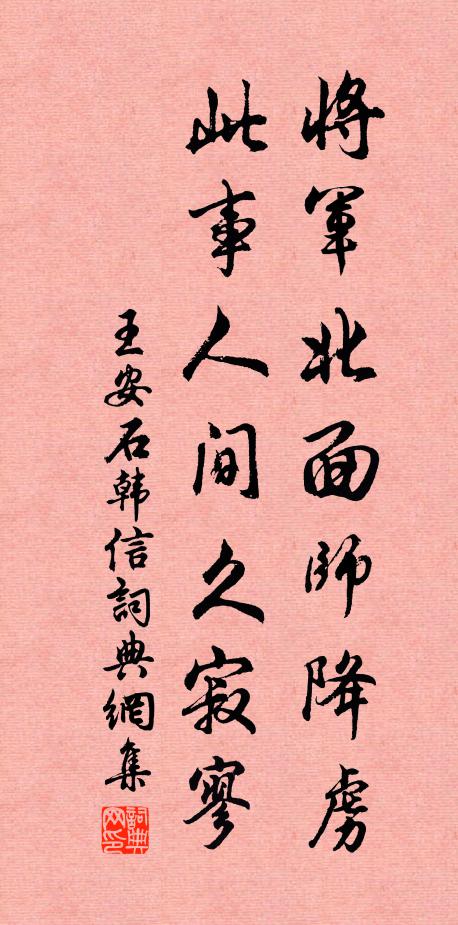 將軍北面師降虜
此事人間久寂寥
王安石韩信詞典網集
詞典网印